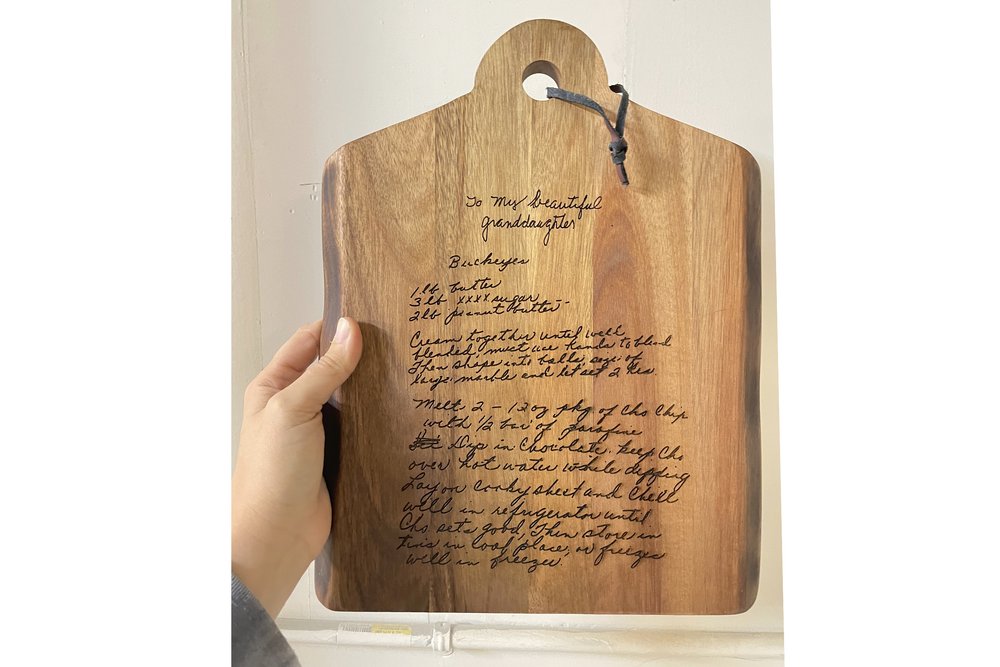 To My beautiful
granddaughter
Buckeyes
1 lb butter
3 lb xxxx sugar
2 lb peanut butter -
Cream together until well
blended, must use hands to blend
Then shape into balls size of
large marble and let set 2 hrs.
Melt 2 - 12 oz pkg of Cho Chip
with 1/2 bar of parafine
Dip in Chocolate. keep Cho
over hot water while dipping
Lay on cooky sheet and Chill
well in refrigerator until
Cho sets good, Then store in
tins in cool place, or freezes
well in freezer.